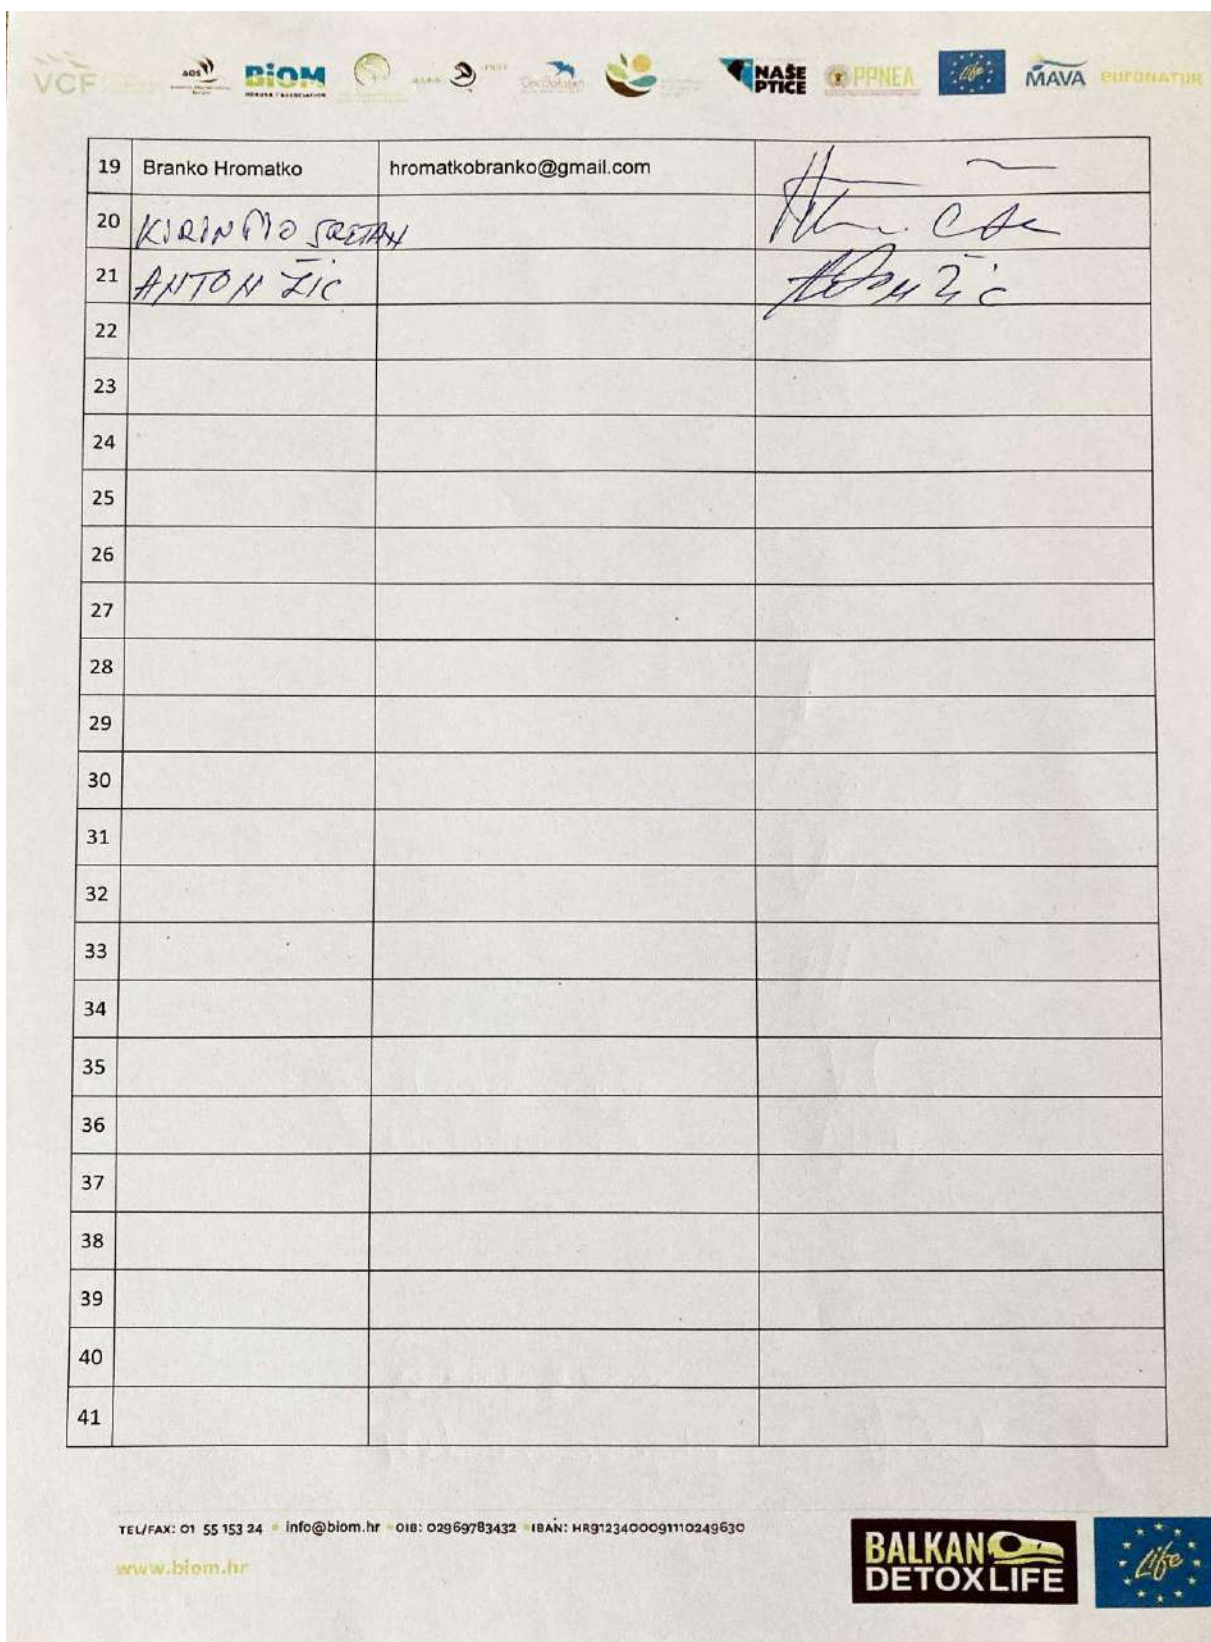 VCF
AOS
BIOM
NAŠE PTICE
PPNEA
Life
MAVA
euronatur
19 Branko Hromatko hromatkobranko@gmail.com
20 SRETAN
21 ANTON ŽIC
22
23
24
25
26
27
28
29
30
31
32
33
34
35
36
37
38
39
40
41
TEL/FAX: 01 55 153 24 info@biom.hr OIB: 02969783432 IBAN: HR9123400091110249630
www.biom.hr
BALKAN
DETOX LIFE
Life